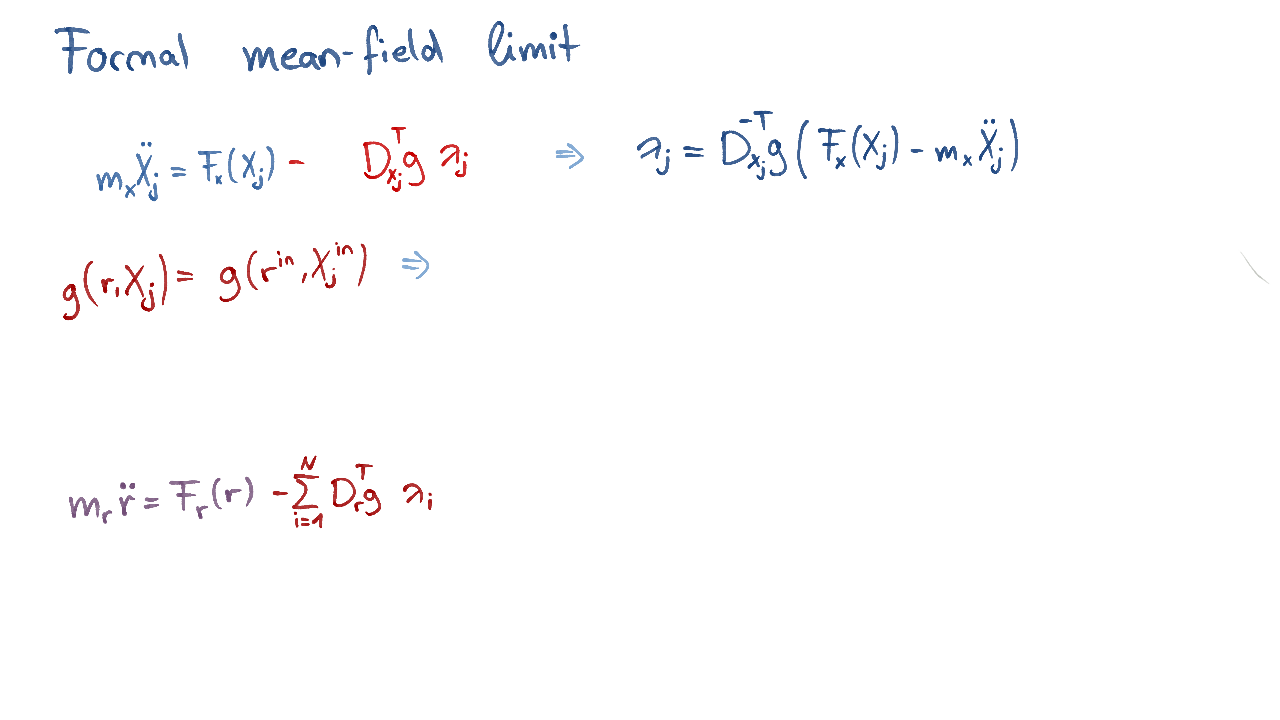 Formal mean-field limit
m_x Ẍ_j = F_x(X_j) - D_{x_j}^T g λ_j ⇒ λ_j = D_{x_j}^{-T} g (F_x(X_j) - m_x Ẍ_j)
g(r, X_j) = g(r^{in}, X_j^{in}) ⇒
m_r r̈ = F_r(r) - ∑_{i=1}^N D_r^T g λ_i